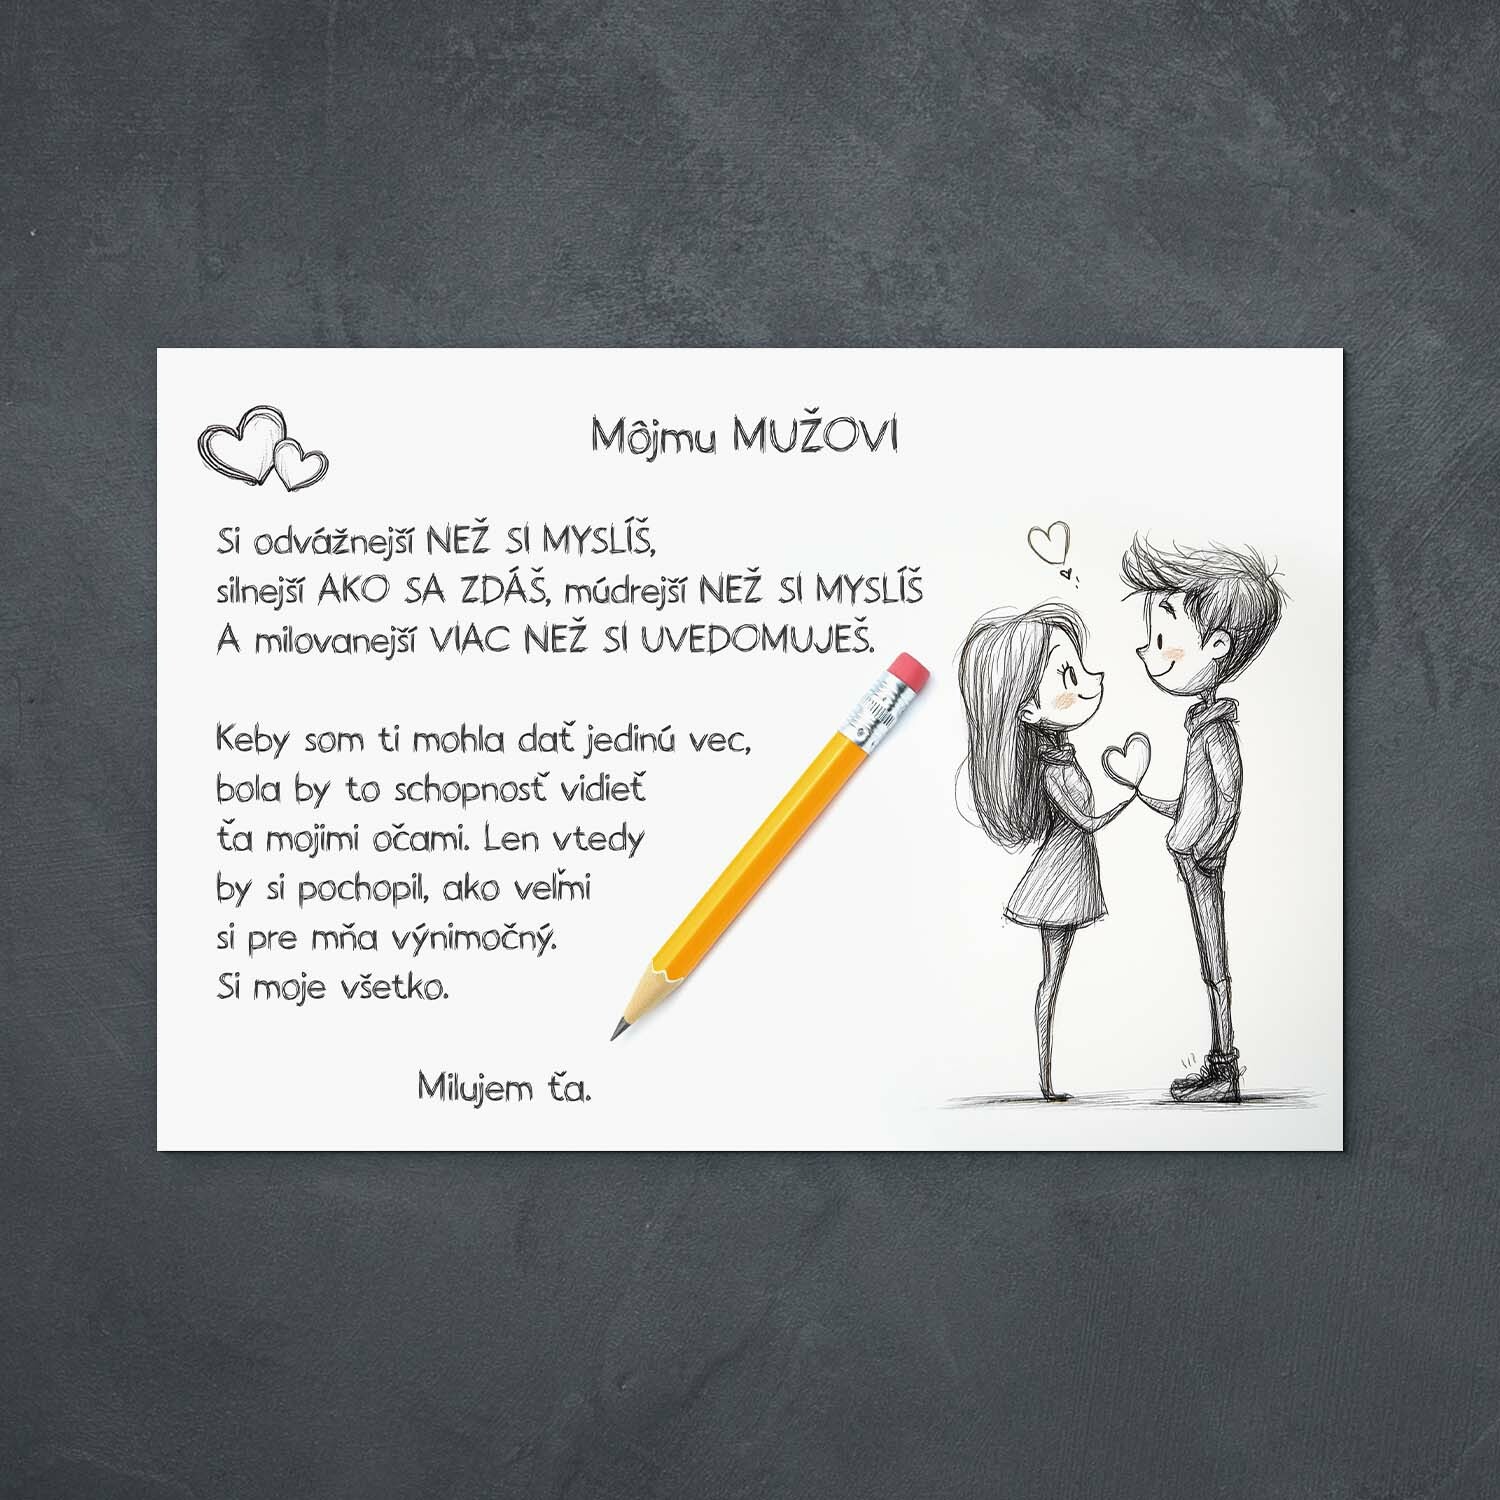 Môjmu MUŽOVI
Si odvážnejší NEŽ SI MYSLÍŠ,
silnejší AKO SA ZDÁŠ, múdrejší NEŽ SI MYSLÍŠ
A milovanejší VIAC NEŽ SI UVEDOMUJEŠ.
Keby som ti mohla dať jedinú vec,
bola by to schopnosť vidieť
ťa mojimi očami. Len vtedy
by si pochopil, ako veľmi
si pre mňa výnimočný.
Si moje všetko.
Milujem ťa.